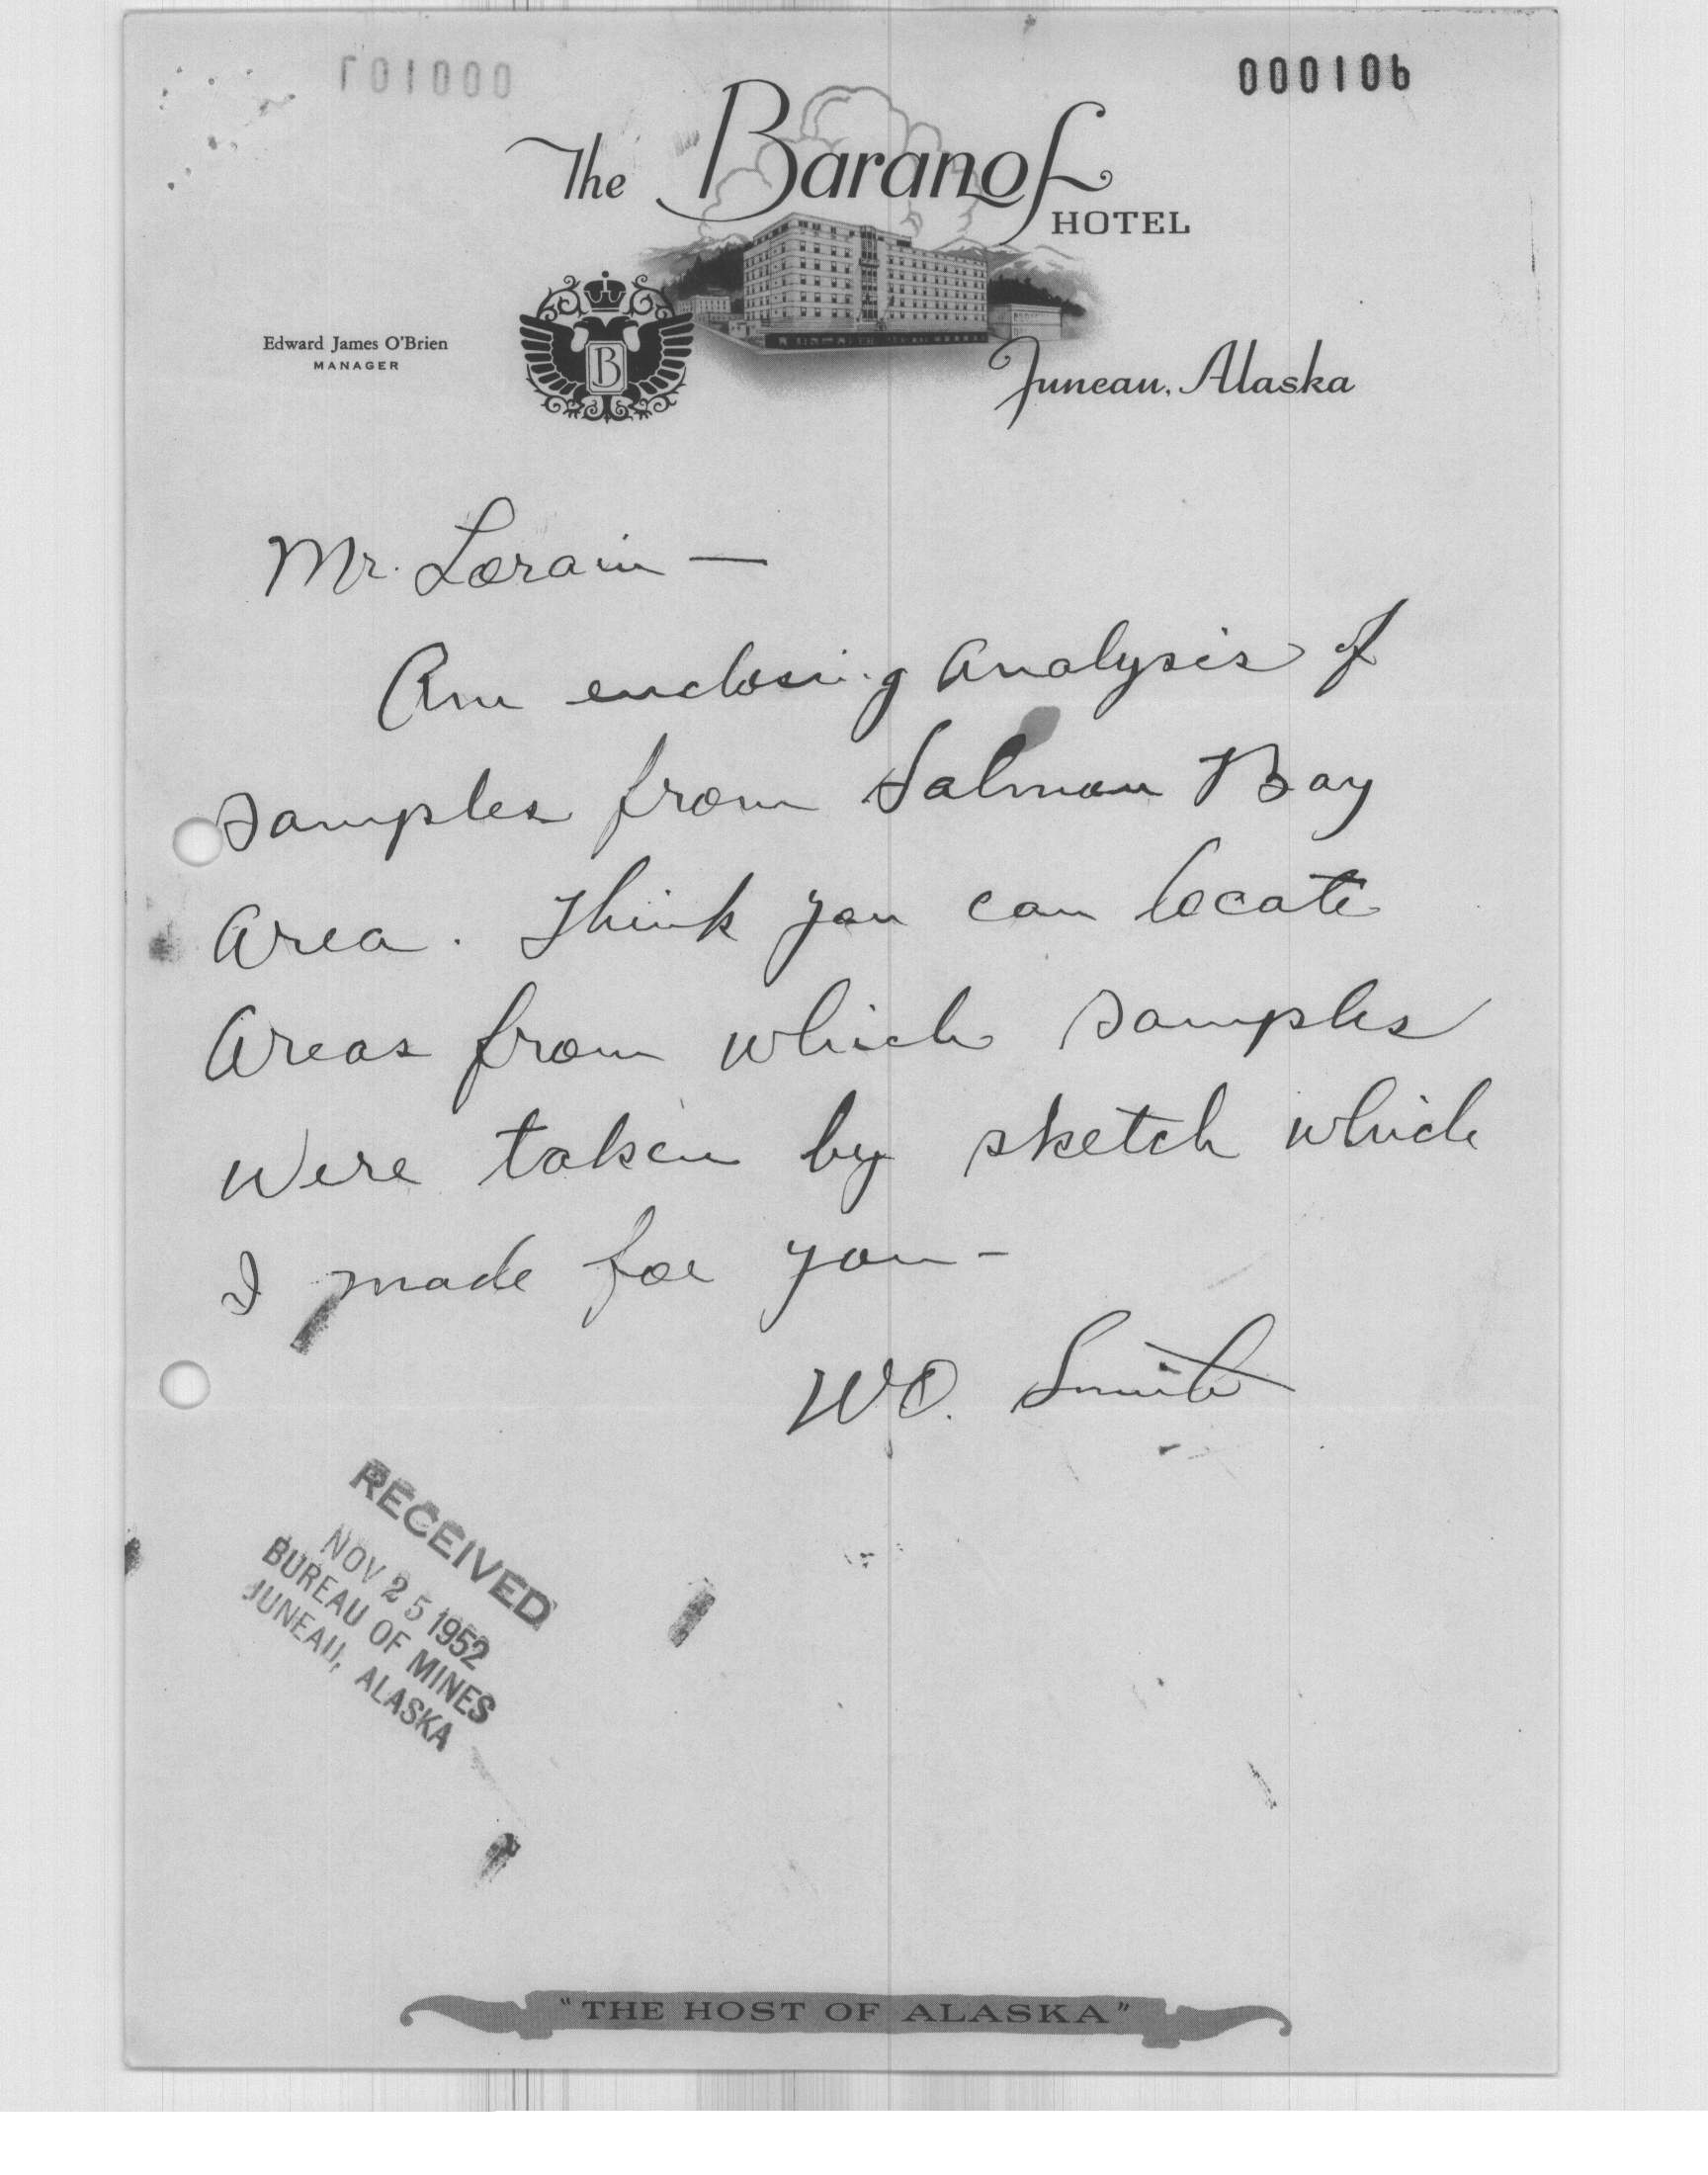 000106
The Baranof
HOTEL
Edward James O'Brien
MANAGER
B
Juneau, Alaska
Mr. Lorain —
Am enclosing analysis of
samples from Salmon Bay
area. Think you can locate
areas from which samples
were taken by sketch which
I made for you -
W.O. Smith
RECEIVED
NOV 25 1952
BUREAU OF MINES
JUNEAU, ALASKA
"THE HOST OF ALASKA"